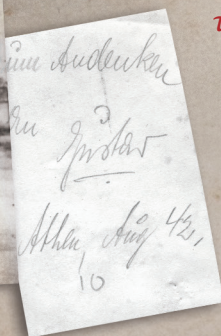 zum Andenken
an
Gustav
Athen, Aug 42,
10